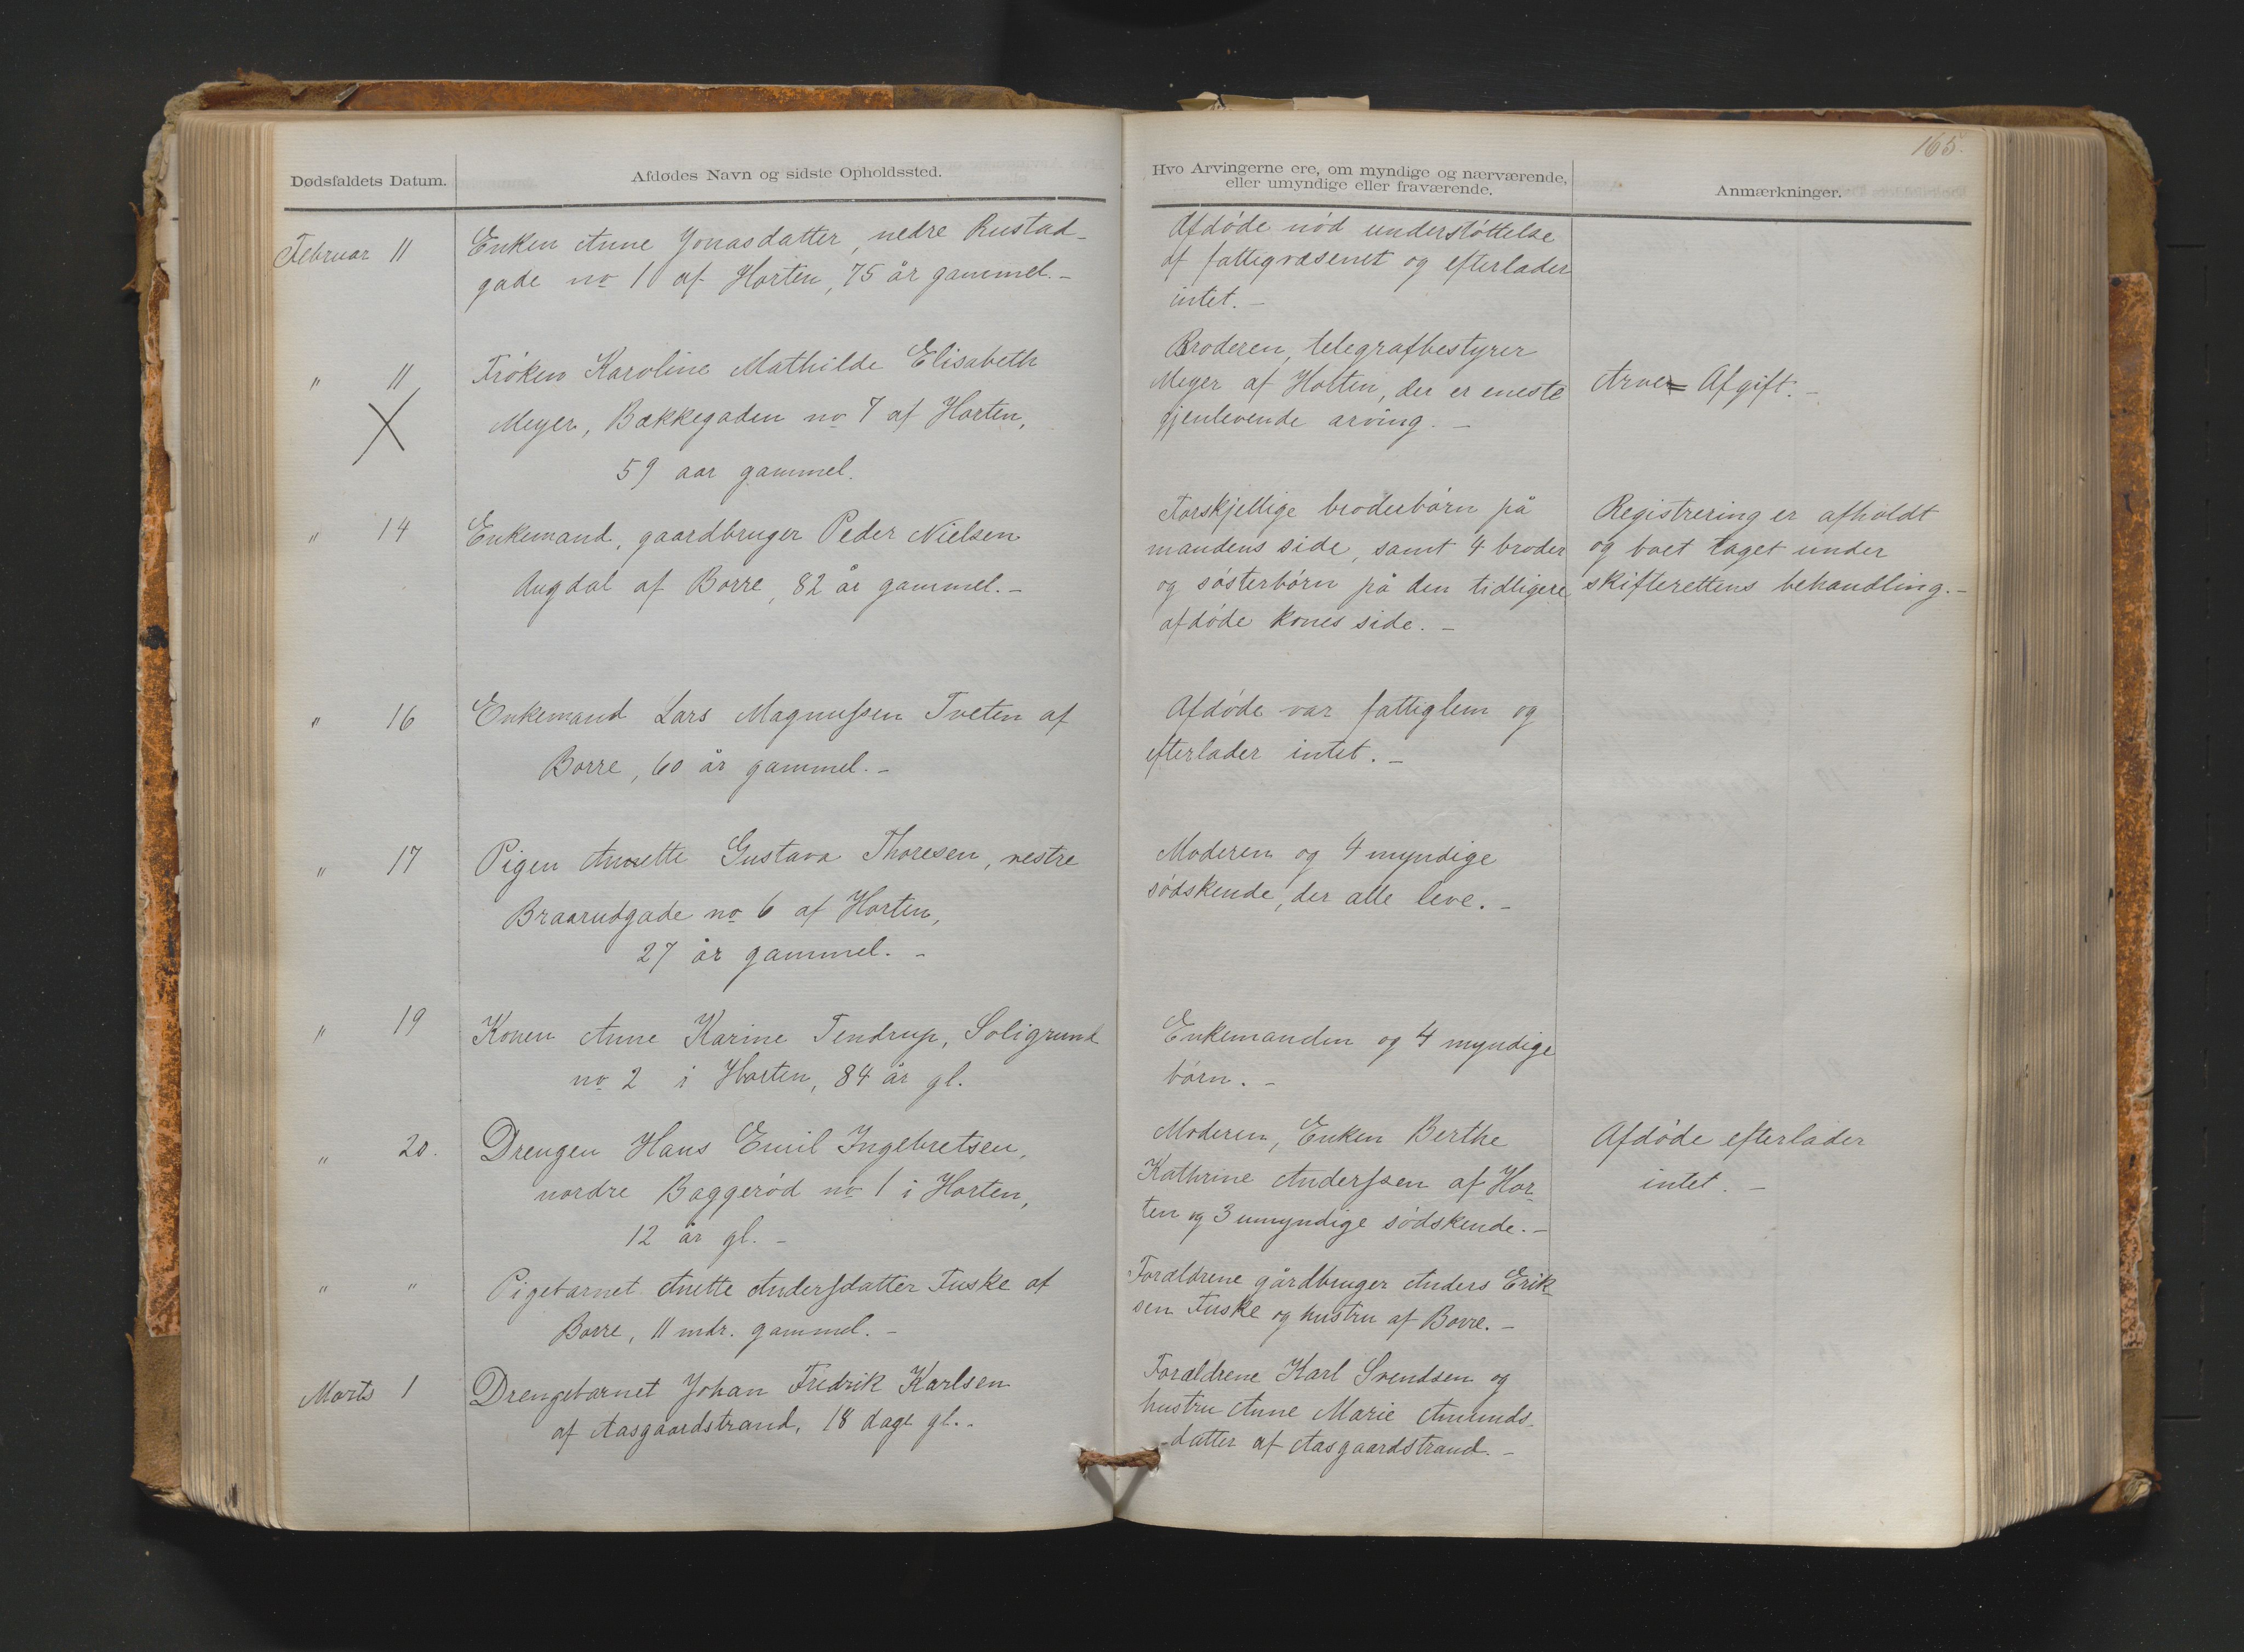 165.
Dødsfaldets Datum.
Afdødes Navn og sidste Opholdssted.
Hvo Arvingerne ere, om myndige og nærværende,
eller umyndige eller fraværende.
Anmærkninger.
Februar 11
Enken Anne Jonasdatter, nedre Rustad-
gade no 1 af Horten, 75 år gammel. -
Afdøde nød understøttelse
af fattigvæsenet og efterlader
intet. -
" 11
Frøken Karoline Mathilde Elisabeth
Meyer, Bækkegaden no 7 af Horten,
59 aar gammel.
Broderen, telegrafbestyrer
Meyer af Horten, der er eneste
gjenlevende arving. -
Arve= Afgift. -
" 14
Enkemand, gaardbruger Peder Nielsen
Augdal af Borre, 82 år gammel. -
Forskjellige broderbørn på
mandens side, samt 4 broder
og søsterbørn på den tidligere
afdøde kones side. -
Registrering er afholdt
og boet taget under
skifterettens behandling. -
" 16
Enkemand Lars Magnussen Tveten af
Borre, 60 år gammel. -
Afdøde var fattiglem og
efterlader intet. -
" 17
Pigen Anette Gustava Thoresen, vestre
Braarudgade no 6 af Horten,
27 år gammel. -
Moderen og 4 myndige
sødskende, der alle leve. -
" 19
Konen Anne Karine Tendrup, Soligrund
no 2 i Horten, 84 år gl.
Enkemanden og 4 myndige
børn. -
" 20.
Drengen Hans Emil Ingebretsen,
nordre Baggerød no 1 i Horten,
12 år gl. -
Moderen, Enken Berthe
Kathrine Anderssen af Hor-
ten og 3 umyndige sødskende. -
Afdøde efterlader
intet. -
" "
Pigebarnet Anette Andersdatter Fuske af
Borre, 11 mdr. gammel. -
Forældrene gårdbruger Anders Erik-
sen Fuske og hustru af Borre. -
Marts 1
Drengebarnet Johan Fredrik Karlsen
af Aasgaardstrand, 18 dage gl. -
Forældrene Karl Svendsen og
hustru Anne Marie Amunds-
-datter af Aasgaardstrand. -